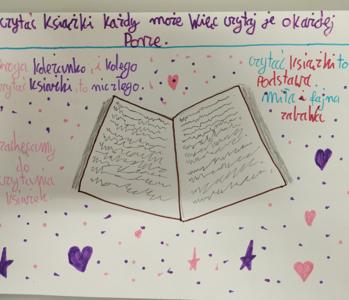 czytać Książki każdy może więc czytaj je o każdej
Porze.
Droga koleżanko i kolego
czytać książki to nic złego.
zachęcamy
do
czytania
książek
czytać książki to
Podstawa
miła i fajna
zabawa